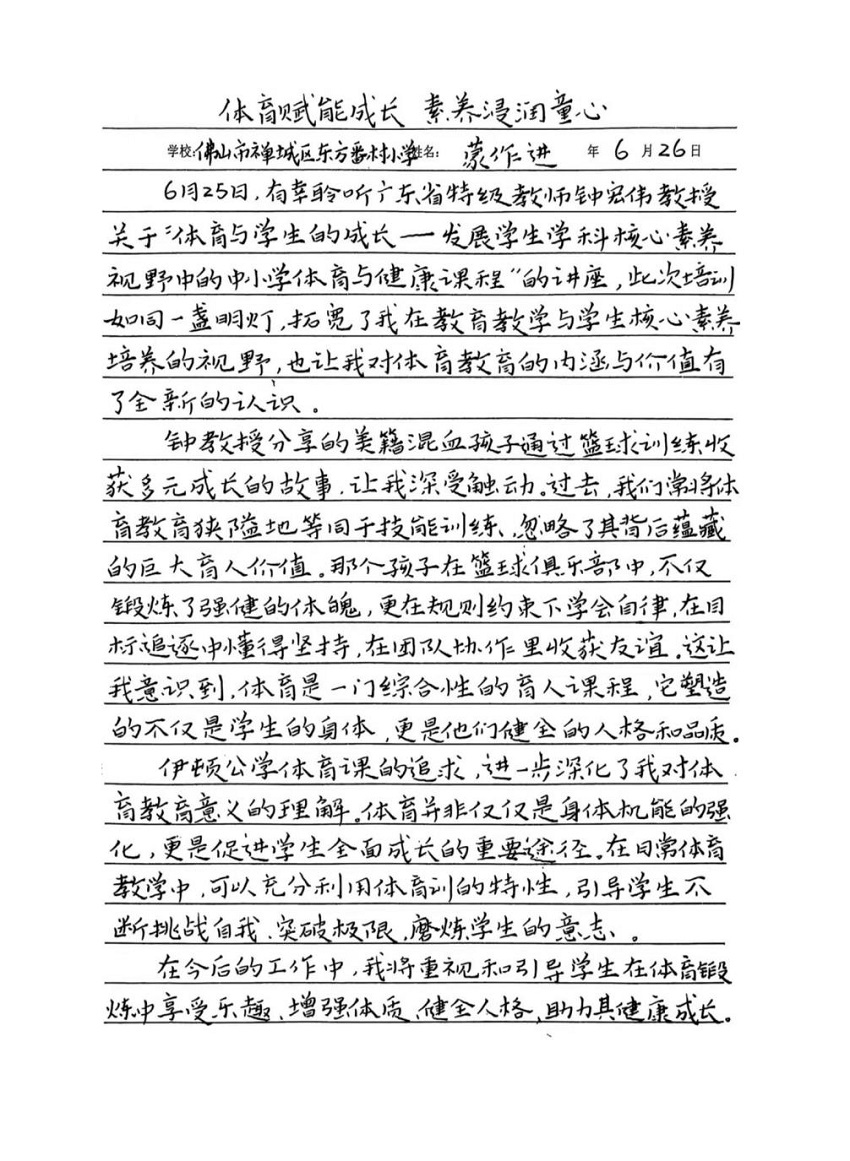 体育赋能成长 素养浸润童心
学校:佛山市禅城区东方番村小学姓名: 蒙作进 年 6 月 26 日
6月25日,有幸聆听广东省特级教师钟宏伟教授
关于“体育与学生的成长——发展学生学科核心素养
视野中的中小学体育与健康课程”的讲座,此次培训
如同一盏明灯,拓宽了我在教育教学与学生核心素养
培养的视野,也让我对体育教育的内涵与价值有
了全新的认识。
钟教授分享的美籍混血孩子通过篮球训练收
获多元成长的故事,让我深受触动。过去,我们常将体
育教育狭隘地等同于技能训练、忽略了其背后蕴藏
的巨大育人价值。那个孩子在篮球俱乐部中,不仅
锻炼了强健的体魄,更在规则约束下学会自律,在目
标追逐中懂得坚持,在团队协作里收获友谊。这让
我意识到,体育是一门综合性的育人课程,它塑造
的不仅是学生的身体,更是他们健全的人格和品质。
伊顿公学体育课的追求,进一步深化了我对体
育教育意义的理解。体育并非仅仅是身体机能的强
化,更是促进学生全面成长的重要途径。在日常体育
教学中,可以充分利用体育训的特性,引导学生不
断挑战自我、突破极限,磨炼学生的意志、。
在今后的工作中,我将重视和引导学生在体育锻
炼中享受乐趣、增强体质、健全人格,助力其健康成长。